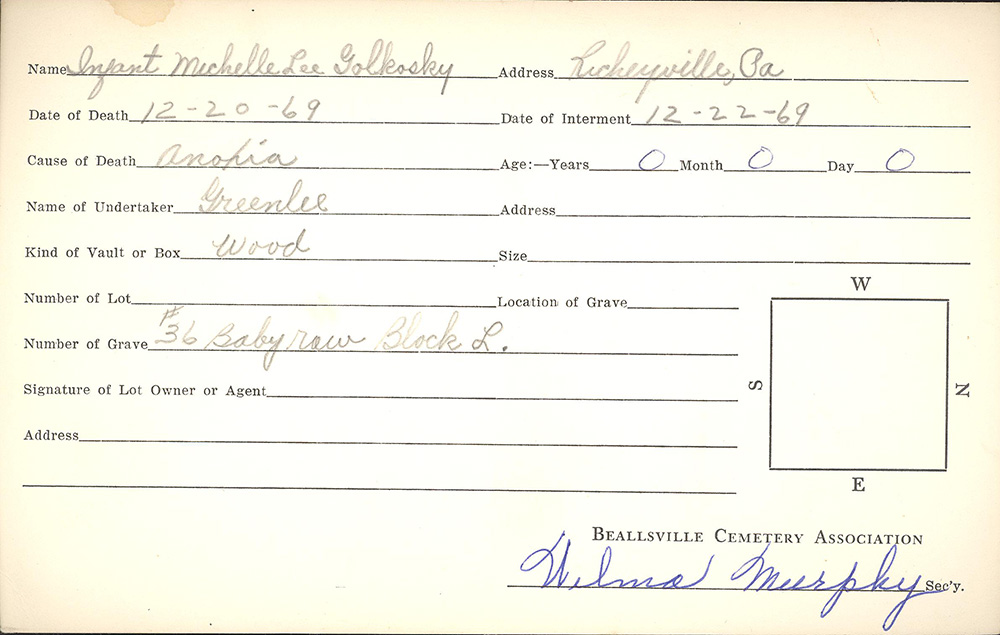 Name Infant Michelle Lee Golkosky Address Richeyville, Pa
Date of Death 12-20-69 Date of Interment 12-22-69
Cause of Death Anoxia Age:—Years 0 Month 0 Day 0
Name of Undertaker Greenlee Address
Kind of Vault or Box Wood Size
Number of Lot Location of Grave
Number of Grave #36 Baby row Block L.
Signature of Lot Owner or Agent
Address
W
S
N
E
BEALLSVILLE CEMETERY ASSOCIATION
Wilma Murphy Sec'y.